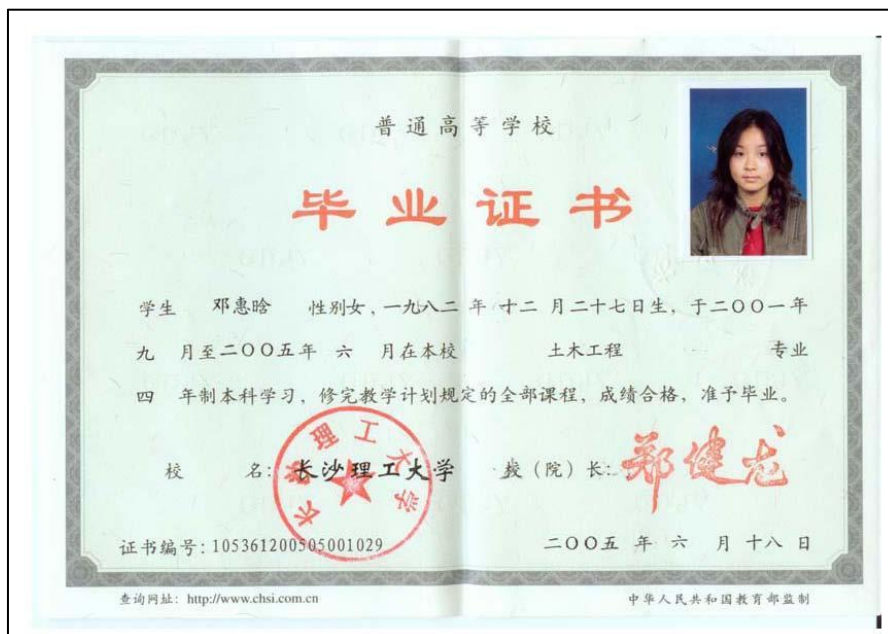 普通高等学校
毕业证书
学生 邓惠晗 性别女，一九八二 年 十二 月二十七日生，于二〇〇一年
九 月至二〇〇五年 六 月在本校 土木工程 专业
四 年制本科学习，修完教学计划规定的全部课程，成绩合格，准予毕业。
校 名：长沙理工大学 校（院）长：郑健龙
长沙理工大学
证书编号：105361200505001029 二〇〇五 年 六 月 十八 日
查询网址：http://www.chsi.com.cn 中华人民共和国教育部监制